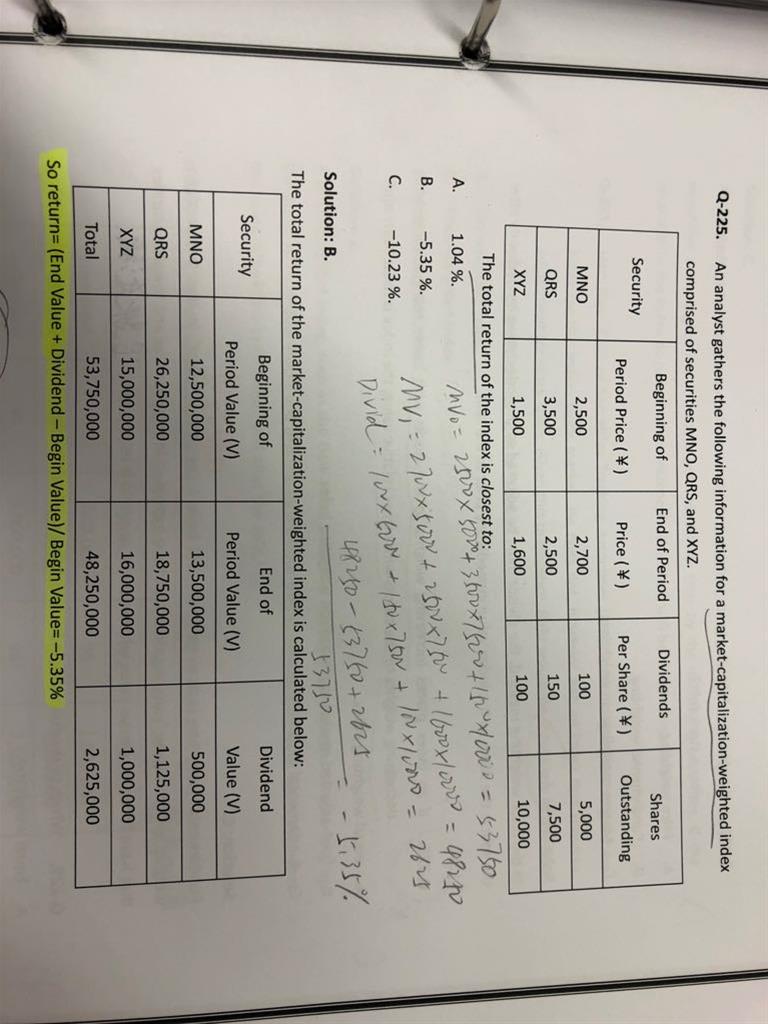 Q-225. An analyst gathers the following information for a market-capitalization-weighted index
comprised of securities MNO, QRS, and XYZ.
Security Beginning of Period Price (¥) End of Period Price (¥) Dividends Per Share (¥) Shares Outstanding
MNO 2,500 2,700 100 5,000
QRS 3,500 2,500 150 7,500
XYZ 1,500 1,600 100 10,000
The total return of the index is closest to:
A. 1.04 %.
B. −5.35 %.
C. −10.23 %.
MV₀ = 2500×5000+3500×7500+1500×10000 = 53750
MV₁ = 2700×5000+2500×750+1600×10000 = 48250
Divid = 100×5000+150×750+100×10000 = 2625
48250 − 53750 + 2625
53750
= − 5.35%
Solution: B.
The total return of the market-capitalization-weighted index is calculated below:
Security Beginning of Period Value (V) End of Period Value (V) Dividend Value (V)
MNO 12,500,000 13,500,000 500,000
QRS 26,250,000 18,750,000 1,125,000
XYZ 15,000,000 16,000,000 1,000,000
Total 53,750,000 48,250,000 2,625,000
So return= (End Value + Dividend − Begin Value)/ Begin Value= −5.35%